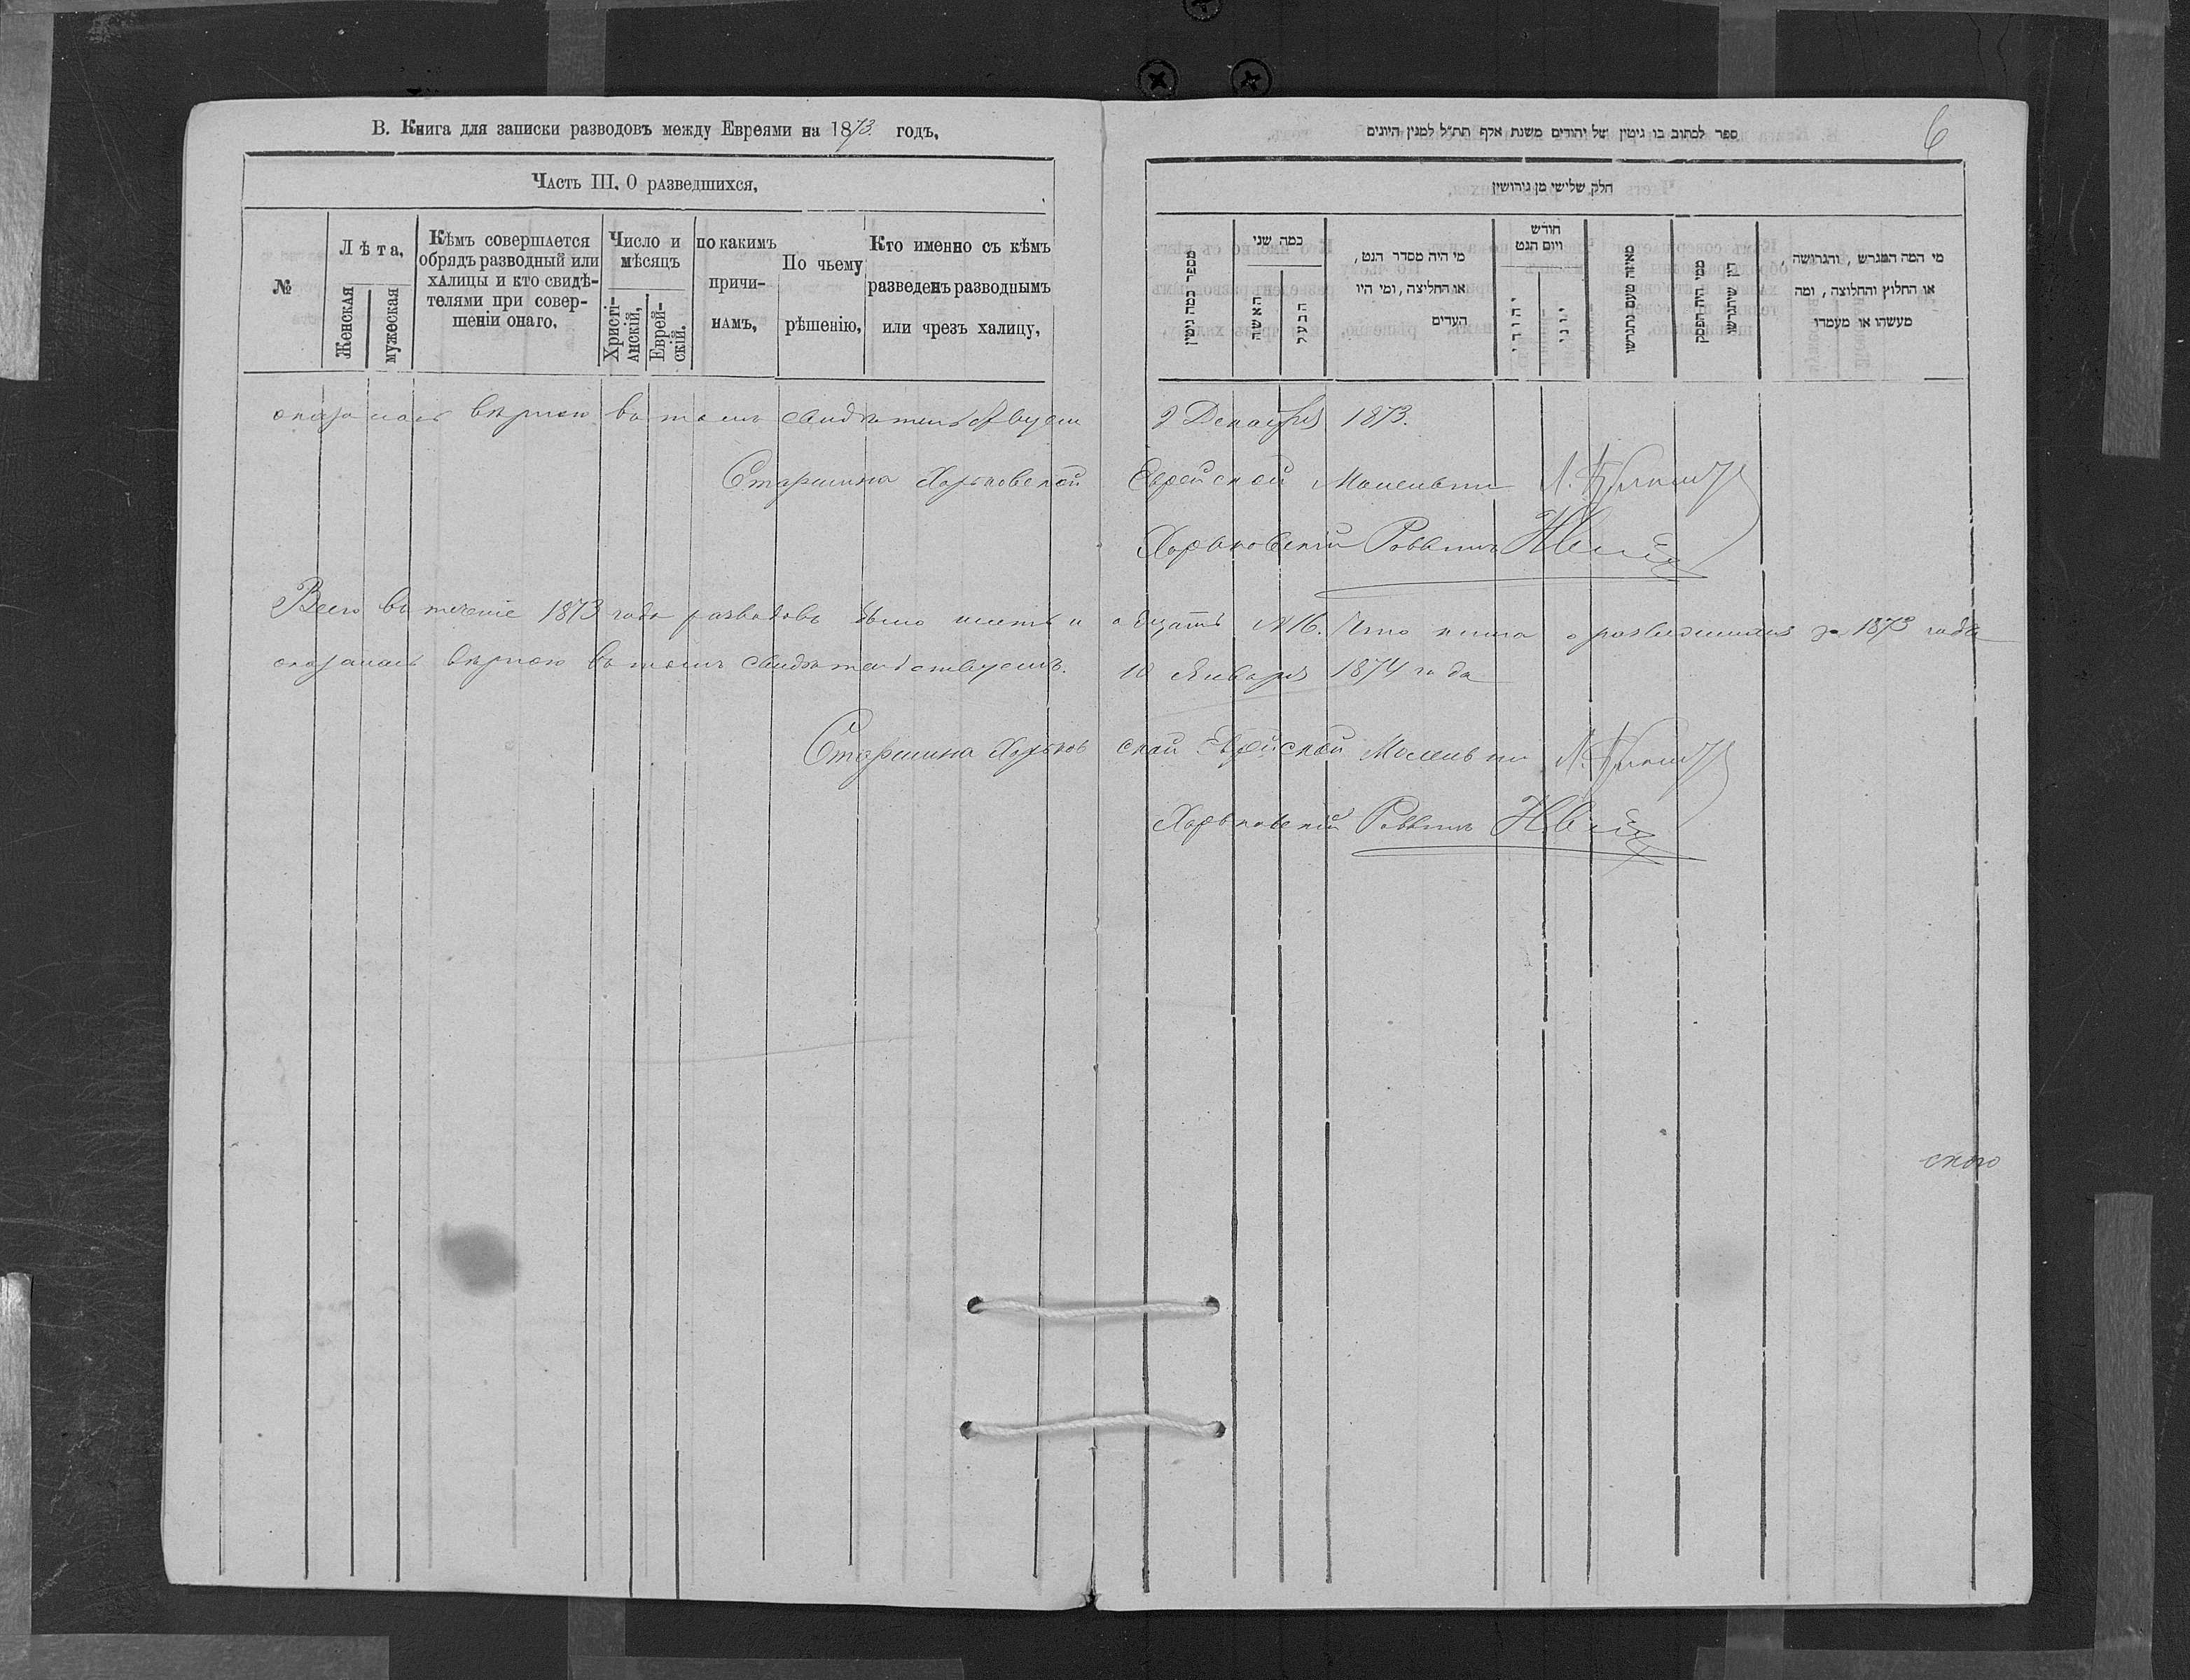 В. Книга для записки разводовъ между Евреями на 1873 годъ.
Часть III. О разведшихся.
№
Лѣта.
Женская
мужеская
Кѣмъ совершается
обрядъ разводный или
халицы и кто свидѣ-
телями при совер-
шеніи онаго.
Число и
мѣсяцъ
Христі-
анскій.
Еврей-
скій.
по какимъ
причи-
намъ.
По чьему
рѣшенію.
Кто именно съ кѣмъ
разведенъ разводнымъ
или чрезъ халицу.
6
ספר לכתוב בו גיטין של יהודים משנת אלף תת״ל למנין היונים
חלק שלישי מן גירושין
מספר כמה גיטין
כמה שני
האשה
הבעל
מי היה מסדר הגט,
או החליצה, ומי היו
העדים
חודש
ויום הגט
יהודי
יוני
מאיזה טעם נתגרשו
ממי היה הפסק
דין שיתגרשו
מי המה המגרש, והגרושה,
או החלוץ והחלוצה, ומה
מעשהו או מעמדו
оказалась вѣрною въ томъ свидѣтельствуемъ 2 Декабря 1873.
Старшина Харьковской Еврейской Молельни
Харьковскій Раввинъ
Всего въ теченіе 1873 года разводовъ было шестнадцать №16. Что книга о разведшихся за 1873 годъ
оказалась вѣрною въ томъ свидѣтельствуемъ. 10 Января 1874 года
Старшина Харьковской Еврейской Молельни
Харьковскій Раввинъ
скаго